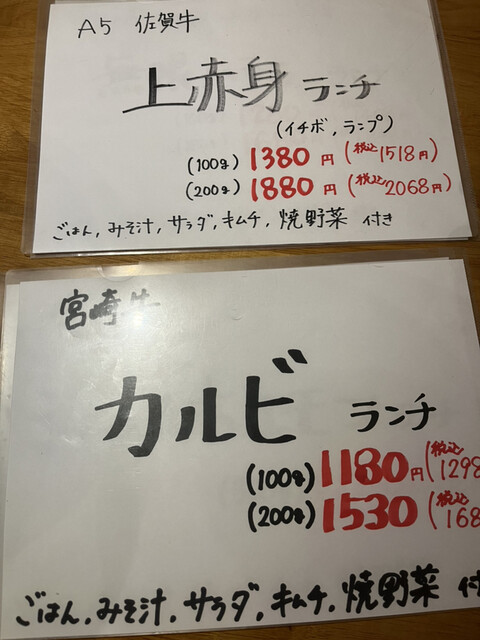 A5 佐賀牛
上赤身 ランチ
(イチボ, ランプ)
(100g) 1380円 (税込1518円)
(200g) 1880円 (税込2068円)
ごはん, みそ汁, サラダ, キムチ, 焼野菜 付き
宮崎牛
カルビ ランチ
(100g) 1180円 (税込1298
(200g) 1530 (税込168
ごはん, みそ汁, サラダ, キムチ, 焼野菜 付